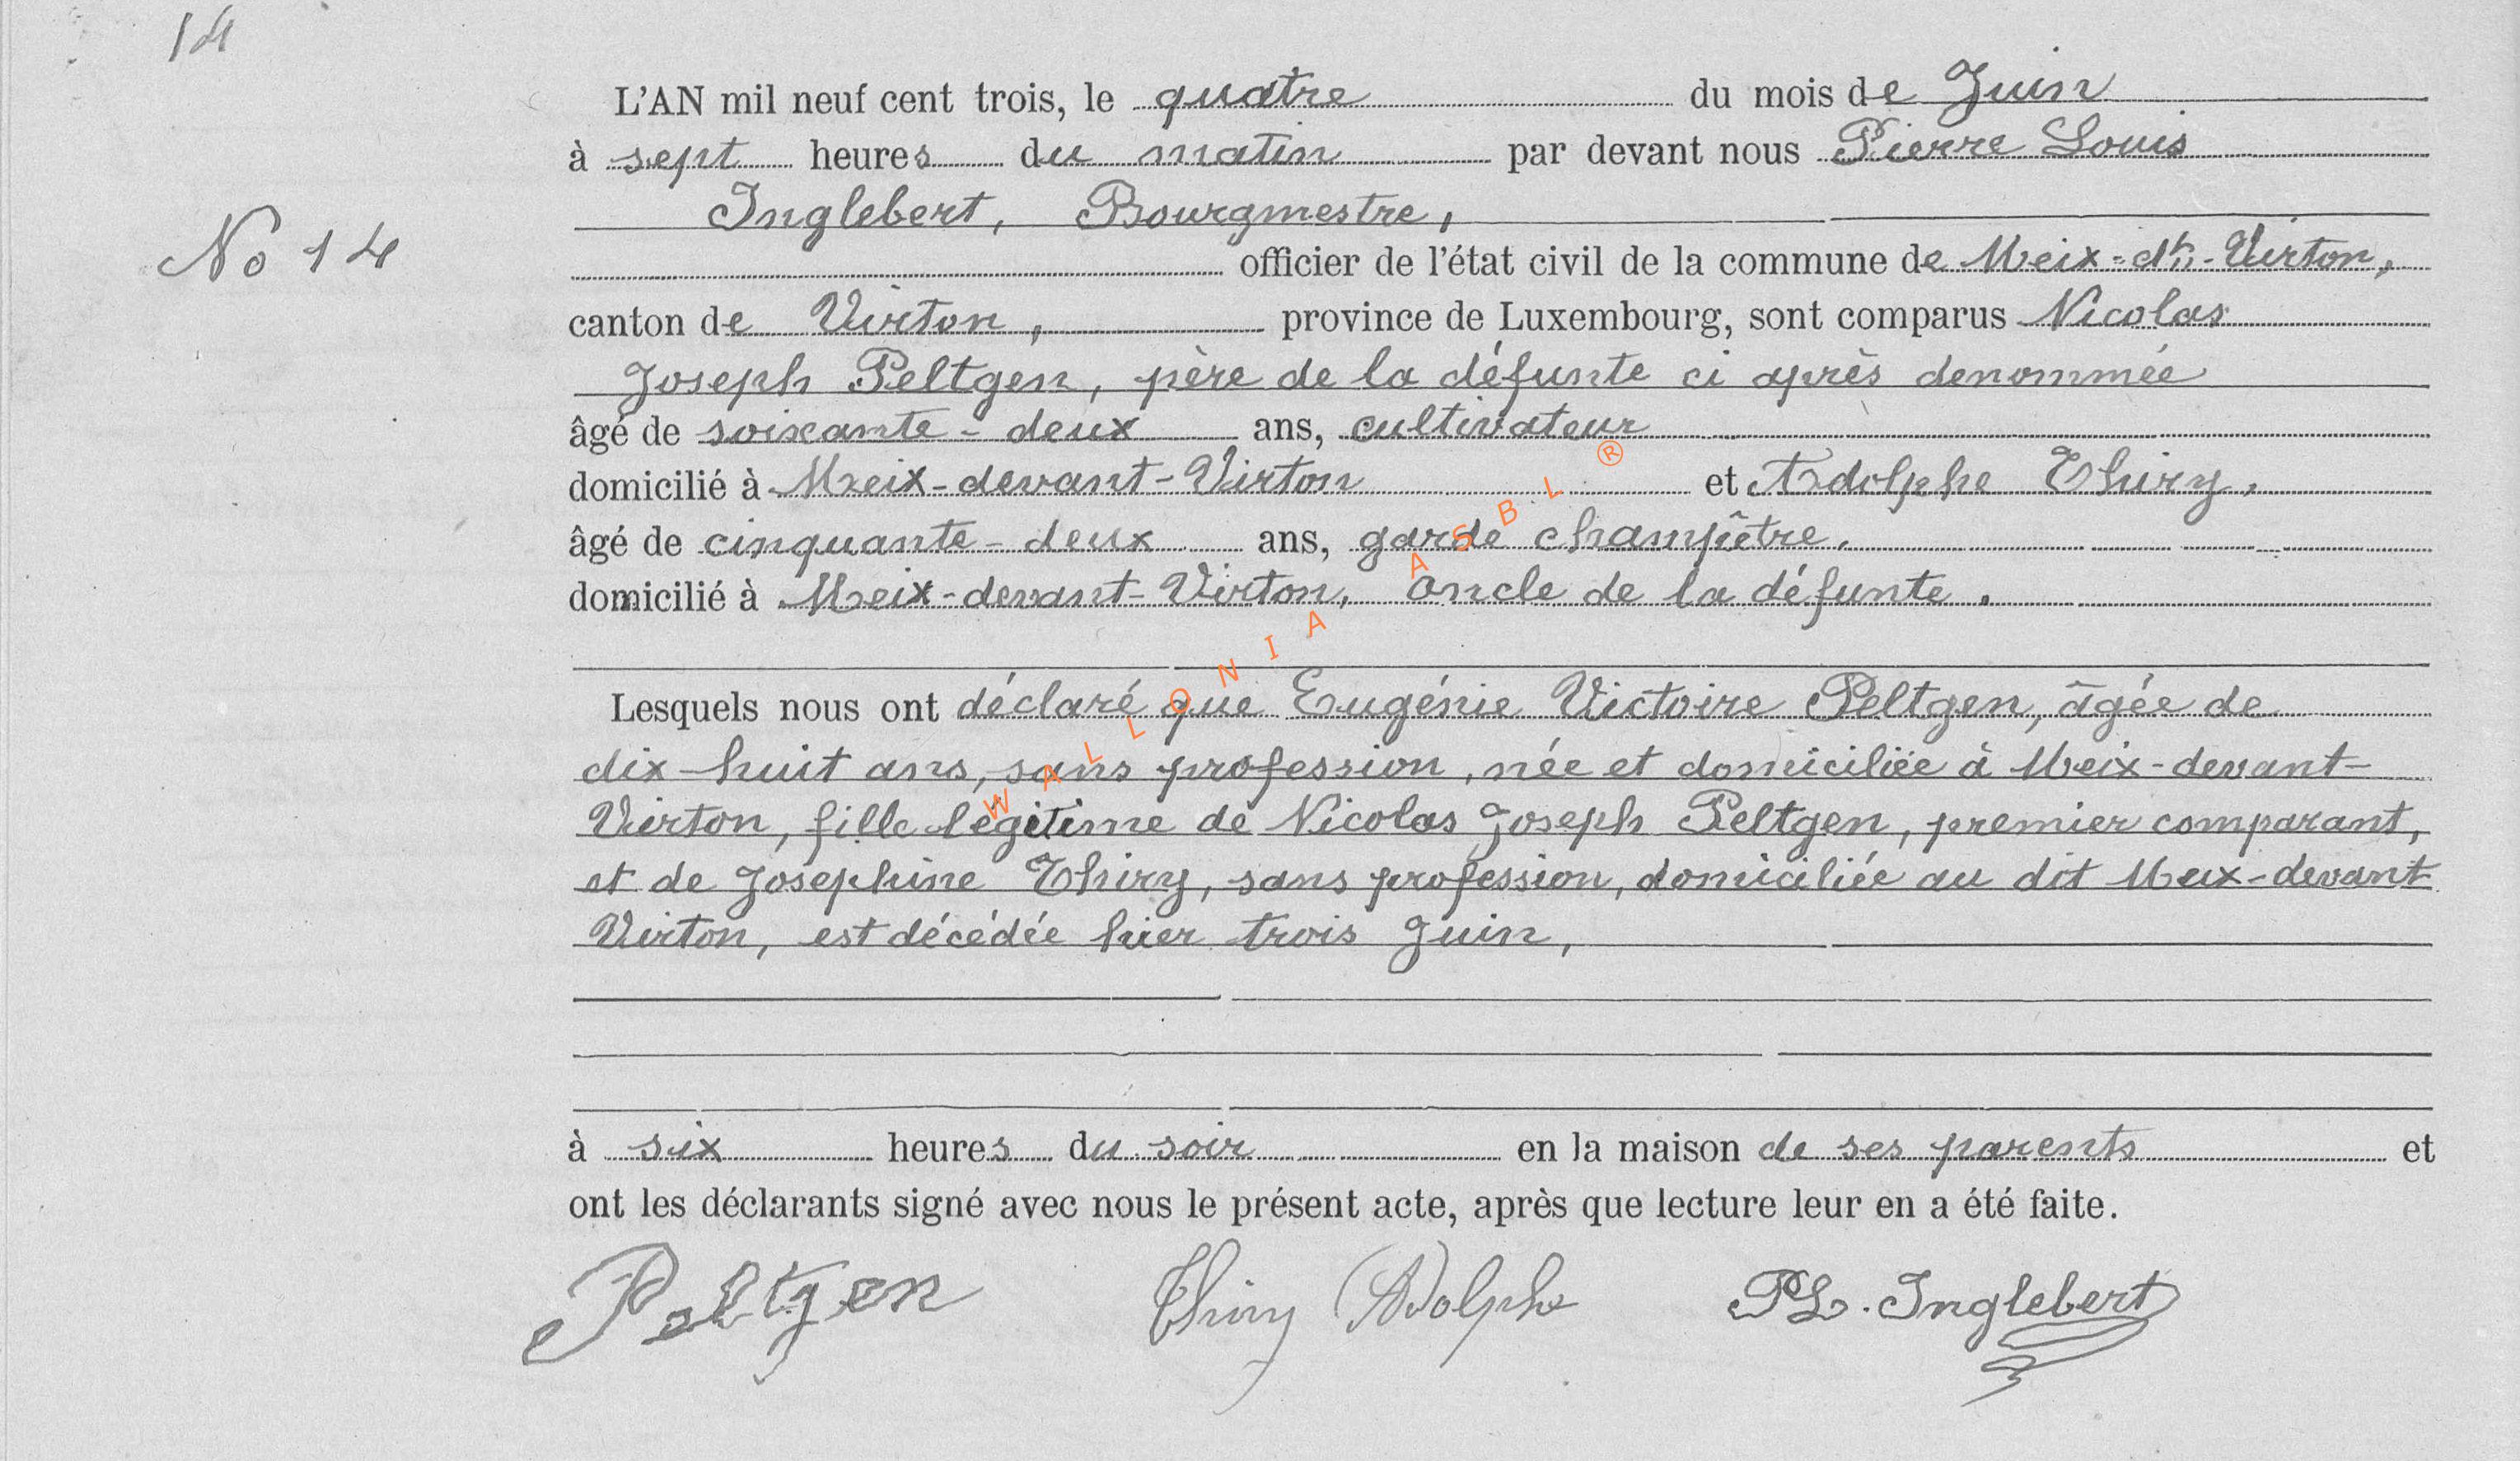 14
L'AN mil neuf cent trois, le quatre du mois de Juin
à sept heures du matin par devant nous Pierre Louis
Inglebert, Bourgmestre,
No 14
officier de l'état civil de la commune de Meix-dt-Virton,
canton de Virton, province de Luxembourg, sont comparus Nicolas
Joseph Peltgen, père de la défunte ci après denommée
âgé de soixante-deux ans, cultivateur
domicilié à Meix-devant-Virton et Adolphe Thiry,
âgé de cinquante-deux ans, garde champêtre,
domicilié à Meix-devant-Virton, oncle de la défunte.
Lesquels nous ont déclaré que Eugénie Victoire Peltgen, âgée de
dix-huit ans, sans profession, née et domiciliée à Meix-devant-
Virton, fille légitime de Nicolas Joseph Peltgen, premier comparant,
et de Josephine Thiry, sans profession, domiciliée au dit Meix-devant-
Virton, est décédée hier trois Juin,
à six heures du soir en la maison de ses parents et
ont les déclarants signé avec nous le présent acte, après que lecture leur en a été faite.
Peltgen Thiry Adolphe PL. Inglebert
WALLONIA ASBL ®